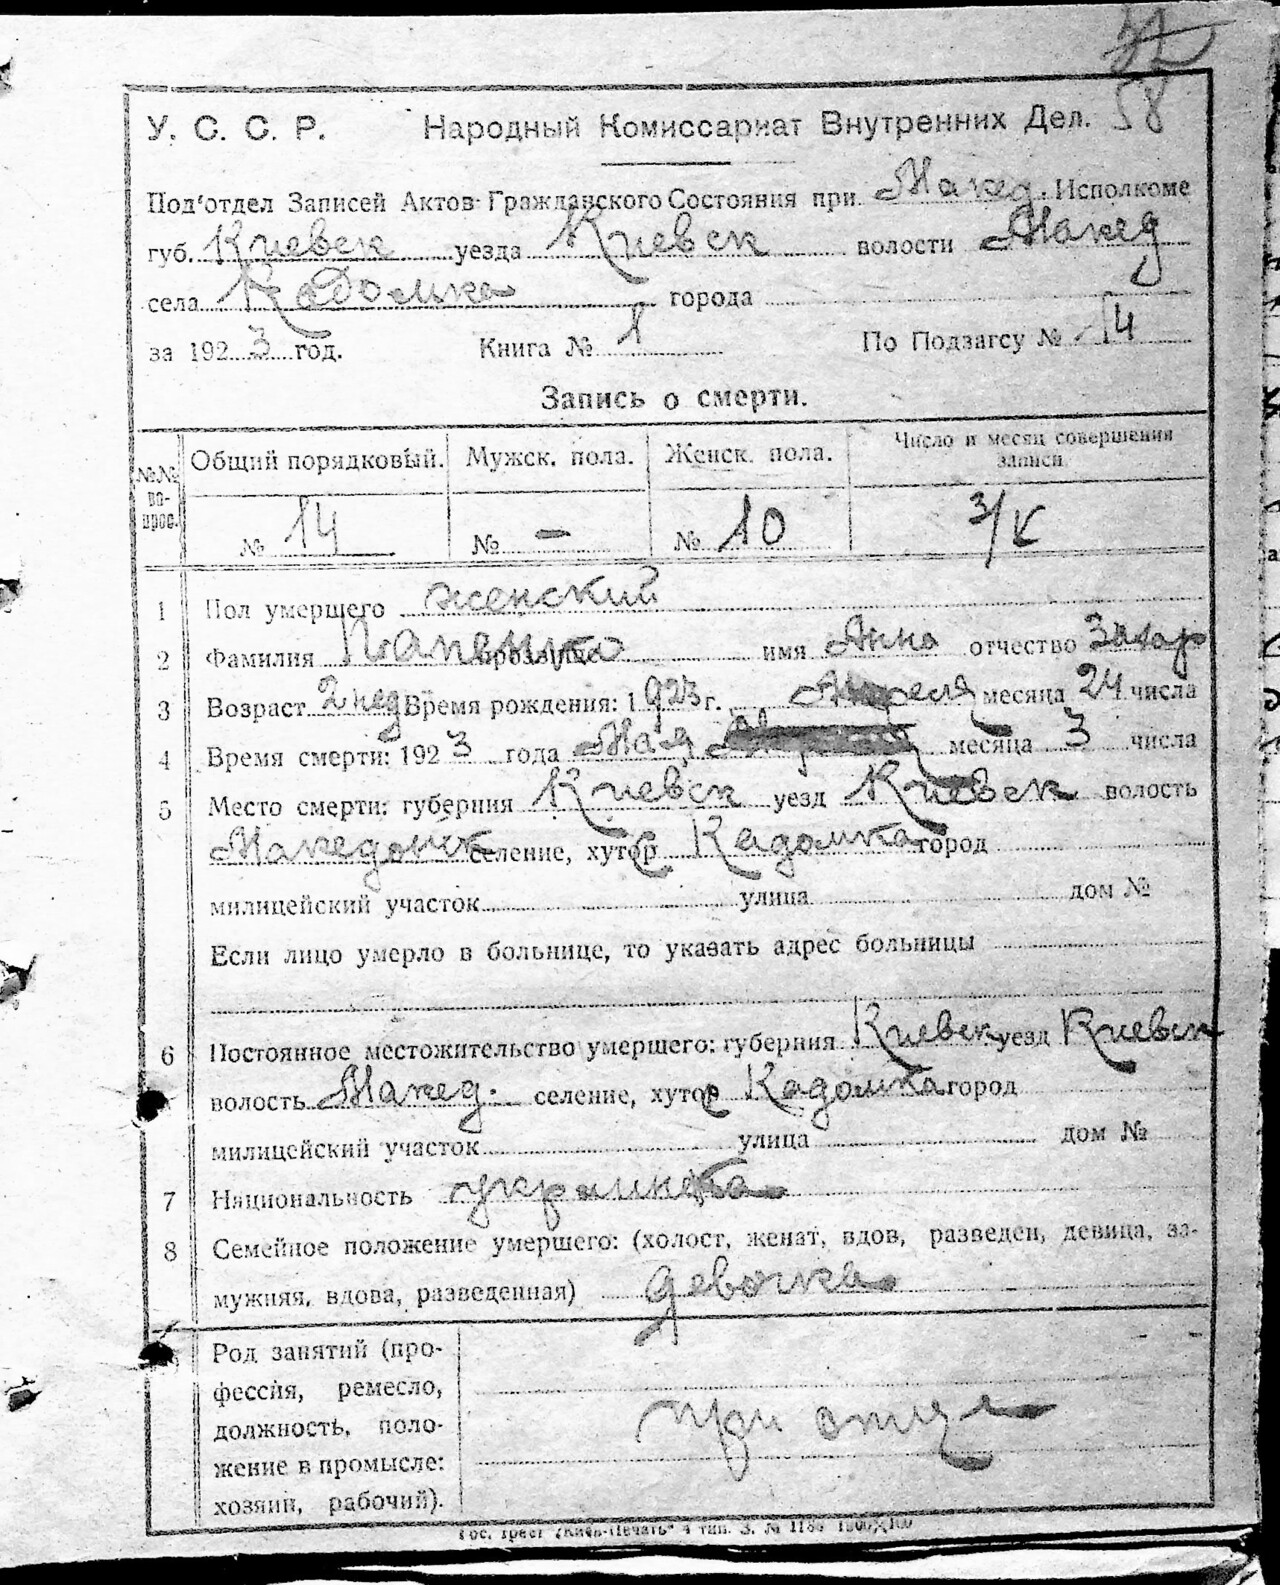 58
У. С. С. Р. Народный Комиссариат Внутренних Дел.
Под'отдел Записей Актов Гражданского Состояния при Макед. Исполкоме
губ. Киевск уезда Киевск волости Макед
села Кадомка города
за 1923 год. Книга № 1 По Подзагсу № 14
Запись о смерти.
№№ вопрос. Общий порядковый. Мужск. пола. Женск. пола. Число и месяц совершения записи
№ 14 № - № 10 3/V
1 Пол умершего женский
2 Фамилия прозвище имя Анна отчество Захар
3 Возраст 2 нед Время рождения: 1923 г. Апреля месяца 24 числа
4 Время смерти: 1923 года Мая месяца 3 числа
5 Место смерти: губерния Киевск уезд Киевск волость
Македонск селение, хутор Кадомка город
милицейский участок улица дом №
Если лицо умерло в больнице, то указать адрес больницы
6 Постоянное местожительство умершего: губерния Киевск уезд Киевск
волость Макед. селение, хутор Кадомка город
милицейский участок улица дом №
7 Национальность украинка
8 Семейное положение умершего: (холост, женат, вдов, разведен, девица, за-
мужняя, вдова, разведенная) девочка
Род занятий (про-
фессия, ремесло,
должность, поло-
жение в промысле:
хозяин, рабочий).
при отце
Гос. трест „Киев-Печать" 4 тип. З. №